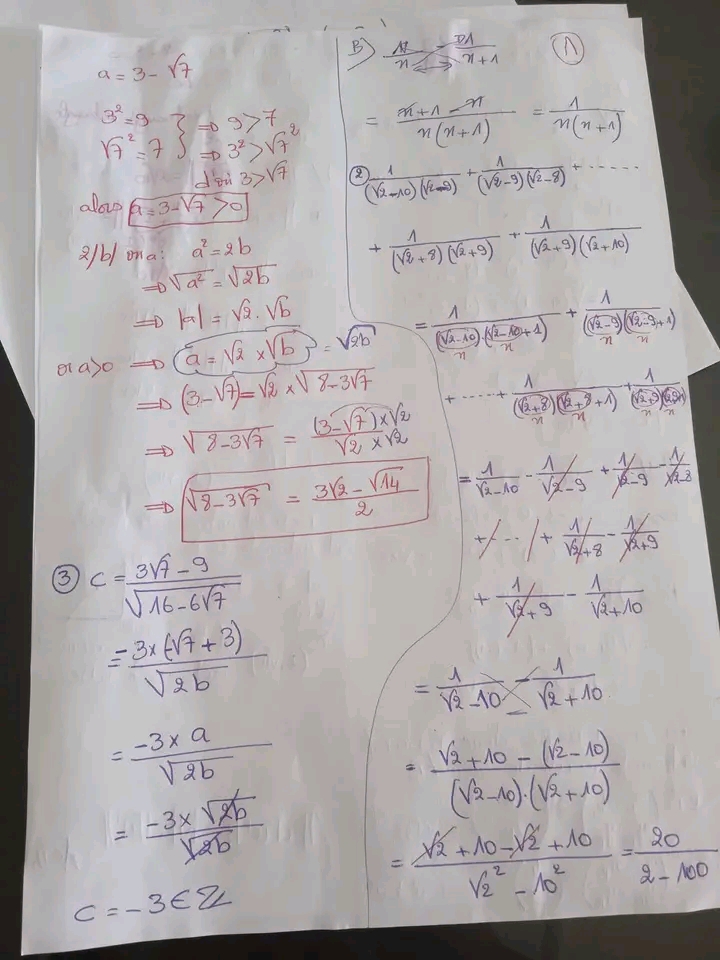 a = 3 - √7
3² = 9
√7² = 7 } ⇒ 9 > 7
⇒ 3² > √7²
d'où 3 > √7
alors a = 3 - √7 > 0
2/b/ on a : a² = 2b
⇒ √a² = √2b
⇒ |a| = √2 . √b
or a>0 ⇒ a = √2 × √b = √2b
⇒ (3 - √7) = √2 × √8 - 3√7
⇒ √8 - 3√7 = (3 - √7) × √2 / √2 × √2
⇒ √8 - 3√7 = 3√2 - √14 / 2
③ C = 3√7 - 9 / √16 - 6√7
= -3 × (-√7 + 3) / √2b
= -3 × a / √2b
= -3 × √2b / √2b
C = -3 ∈ ℤ
B) 1/n - 1/n+1 ①
= n+1 - n / n(n+1) = 1 / n(n+1)
② 1 / (√2-10)(√2-9) + 1 / (√2-9)(√2-8) + ......
+ 1 / (√2+8)(√2+9) + 1 / (√2+9)(√2+10)
= 1 / (√2-10).(√2-10+1) + 1 / (√2-9)(√2-9+1)
n n n
+ ..... + 1 / (√2+8)(√2+8+1) + 1 / (√2+9)
n n n
= 1/√2-10 - 1/√2-9 + 1/√2-9 - 1/√2-8
+ .... + 1/√2+8 - 1/√2+9
+ 1/√2+9 - 1/√2+10
= 1/√2-10 - 1/√2+10
= √2+10 - (√2-10) / (√2-10).(√2+10)
= √2 + 10 - √2 + 10 / √2² - 10² = 20 / 2-100